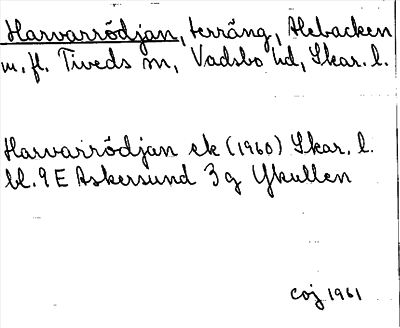 Harvarrödjan, terräng, Alebacken
m.fl. Tiveds sn, Vadsbo hd, Skar. l.
Harvarrödjan ek (1960) Skar. l.
bl. 9E Askersund 3g Ykullen
coj 1961